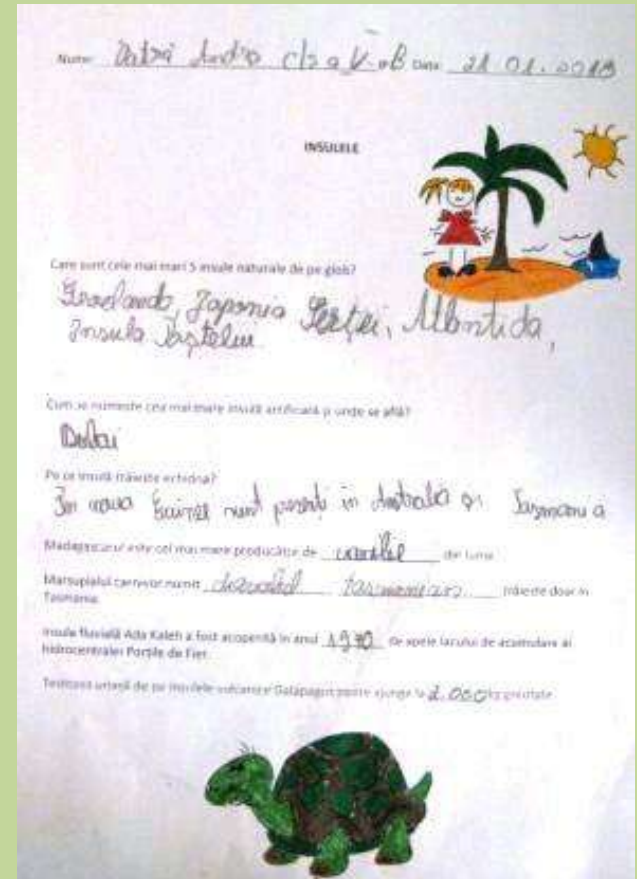 Nume: Andra cls a V-a B Data 21.01.2019
INSULELE
Care sunt cele mai mari 5 insule naturale de pe glob?
Japonia Atlantida,
Insula Paștelui
Cum se numește cea mai mare insulă artificială și unde se află?
Dubai
Pe ce insulă trăiește echidna?
În noua in Australia și
Madagascarul este cel mai mare producător de vanilie din lume
Marsupialul carnivor numit diavolul tasmanian trăiește doar în
Tasmania.
Insula fluvială Ada Kaleh a fost acoperită în anul 1970 de apele lacului de acumulare al
hidrocentralei Porțile de Fier.
Țestoasa uriașă de pe insulele vulcanice Galapagos poate ajunge la 2.000 kg greutate